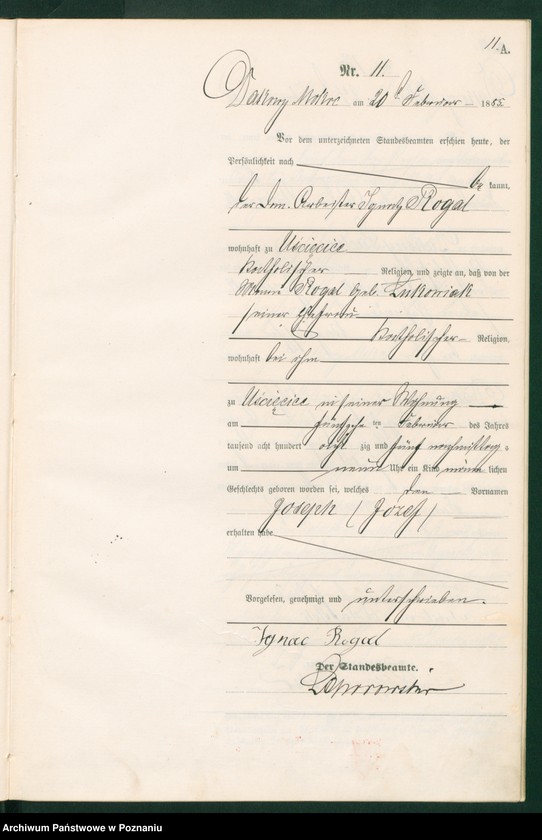 11. A.
Nr. 11.
Dakowy Mokre am 20 ten Februar 1885
Vor dem unterzeichneten Standesbeamten erschien heute, der
Persönlichkeit nach
be kannt,
der Dom. Arbeiter Ignatz Rogal
wohnhaft zu Uścięcice
katholischer Religion, und zeigte an, daß von der
Rogal geb. Lukowiak
seiner Ehefrau
katholischer Religion,
wohnhaft bei ihm
zu Uścięcice in seiner Wohnung
am fünfzehn ten Februar des Jahres
tausend acht hundert acht zig und fünf nachmittag s
um neun Uhr ein Kind männ lichen
Geschlechts geboren worden sei, welches den Vornamen
Joseph (Józef)
erhalten habe
Vorgelesen, genehmigt und unterschrieben.
Ignac Rogal
Der Standesbeamte.
Archiwum Państwowe w Poznaniu